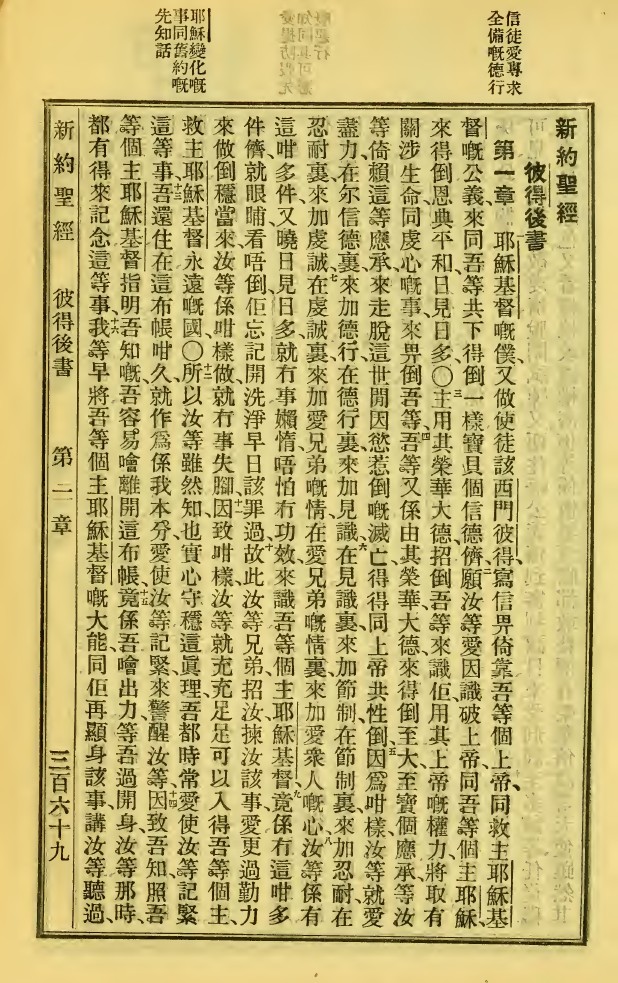 信徒愛專求
全備嘅德行
耶穌變化嘅
事同舊約嘅
先知話
新約聖經
彼得後書
第一章 一耶穌基督嘅僕、又做使徒該西門彼得、寫信畀倚靠吾等個上帝、同救主耶穌基
督嘅公義、來同吾等共下得倒一樣寶貝個信德儕、願汝等愛因識破上帝、同吾等個主耶穌、
來得倒恩典平和、日見日多、〇三主用其榮華大德、招倒吾等、來識佢、用其上帝嘅權力、將取有
關涉生命、同虔心嘅事、來畀倒吾等、四吾等又係由其榮華大德、來得倒至大至寶個應承、等汝
等倚賴這等應承、來走脫這世間因慾惹倒嘅滅亡、得得同上帝共性倒、五因為咁樣、汝等就愛
盡力、在尔信德裏來加德行、在德行裏來加見識、六在見識裏來加節制、在節制裏來加忍耐、在
忍耐裏來加虔誠、七在虔誠裏來加愛兄弟嘅情、在愛兄弟嘅情裏來加愛衆人嘅心、八汝等係有
這咁多件、又曉日見日多、就冇事嬾惰、唔怕冇功效來識吾等個主耶穌基督、九竟係冇這咁多
件儕、就眼晡看唔倒、佢忘記開洗淨早日該罪過、十故此汝等兄弟、招汝揀汝該事、愛更過勤力
來做倒穩當、來汝等係咁樣做、就冇事失腳、十一因致咁樣汝等就充充足足、可以入得吾等個主、
救主耶穌基督永遠嘅國、〇十二所以汝等雖然知也、實心守穩這真理、吾都時常愛使汝等記緊
這等事、十三吾還住在這布帳咁久、就作為係我本分、愛使汝等記緊、來警醒汝等、十四因致吾知照吾
等個主耶穌基督指明吾知嘅、吾容易噲離開這布帳、十五竟係吾噲出力、等吾過開身、汝等那時、
都有得來記念這等事、十六我等早將吾等個主耶穌基督嘅大能、同佢再顯身該事、講汝等聽過、
新約聖經 彼得後書 第一章 三百六十九